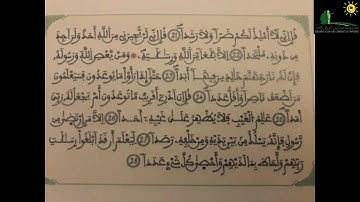 قُلِ اِنِّے لَآ أَمْلِكُ لَكُمْ ضَرّاً وَلَا رَشَداً 21 قُلِ اِنِّے لَنْ يُّجِيرَنِے مِنَ اَللَّهِ أَحَدٌ وَلَنَ اَجِدَ
مِن دُونِهِۦ مُلْتَحَداً 22 اِلَّا بَلَٰغاً مِّنَ اَللَّهِ وَرِسَٰلَٰتِهِۦ وَمَنْ يَّعْصِ اِللَّهَ وَرَسُولَهُۥ
فَإِنَّ لَهُۥ نَارَ جَهَنَّمَ خَٰلِدِينَ فِيهَآ أَبَداً 23 حَتَّىٰٓ إِذَا رَأَوْاْ مَا يُوعَدُونَ فَسَيَعْلَمُونَ
مَنَ اَضْعَفُ نَاصِراً وَأَقَلُّ عَدَداً 24 قُلِ اِنَ اَدْرِےٓ أَقَرِيبٌ مَّا تُوعَدُونَ أَمْ يَجْعَلُ لَهُۥ رَبِّيَ
أَمَداً 25 عَٰلِمُ الْغَيْبِ فَلَا يُظْهِرُ عَلَىٰ غَيْبِهِۦٓ أَحَداً 26 اِلَّا مَنِ اِرْتَضَىٰ مِن
رَّسُولٍ فَإِنَّهُۥ يَسْلُكُ مِنۢ بَيْنِ يَدَيْهِ وَمِنْ خَلْفِهِۦ رَصَداً 27 لِّيَعْلَمَ أَن قَدَ اَبْلَغُواْ رِسَٰلَٰتِ
رَبِّهِمْ وَأَحَاطَ بِمَا لَدَيْهِمْ وَأَحْصَىٰ كُلَّ شَےْءٍ عَدَداً 28